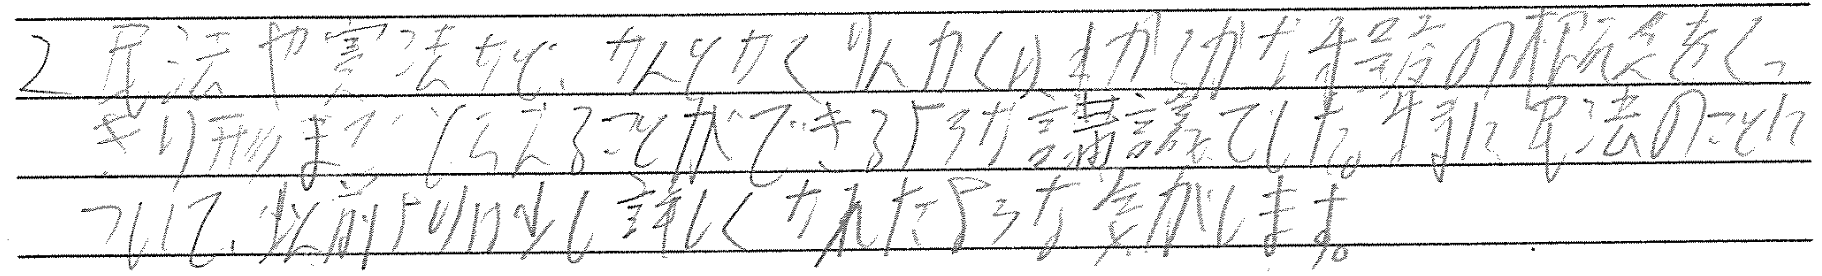 2 民法や憲法など、なんとなくりんかくはわかってかな単語の概念をくっ
きり形まで、とらえることができるような講議でした。特に民法のことに
ついて、以前よりは少し詳しくなれたような気がします。